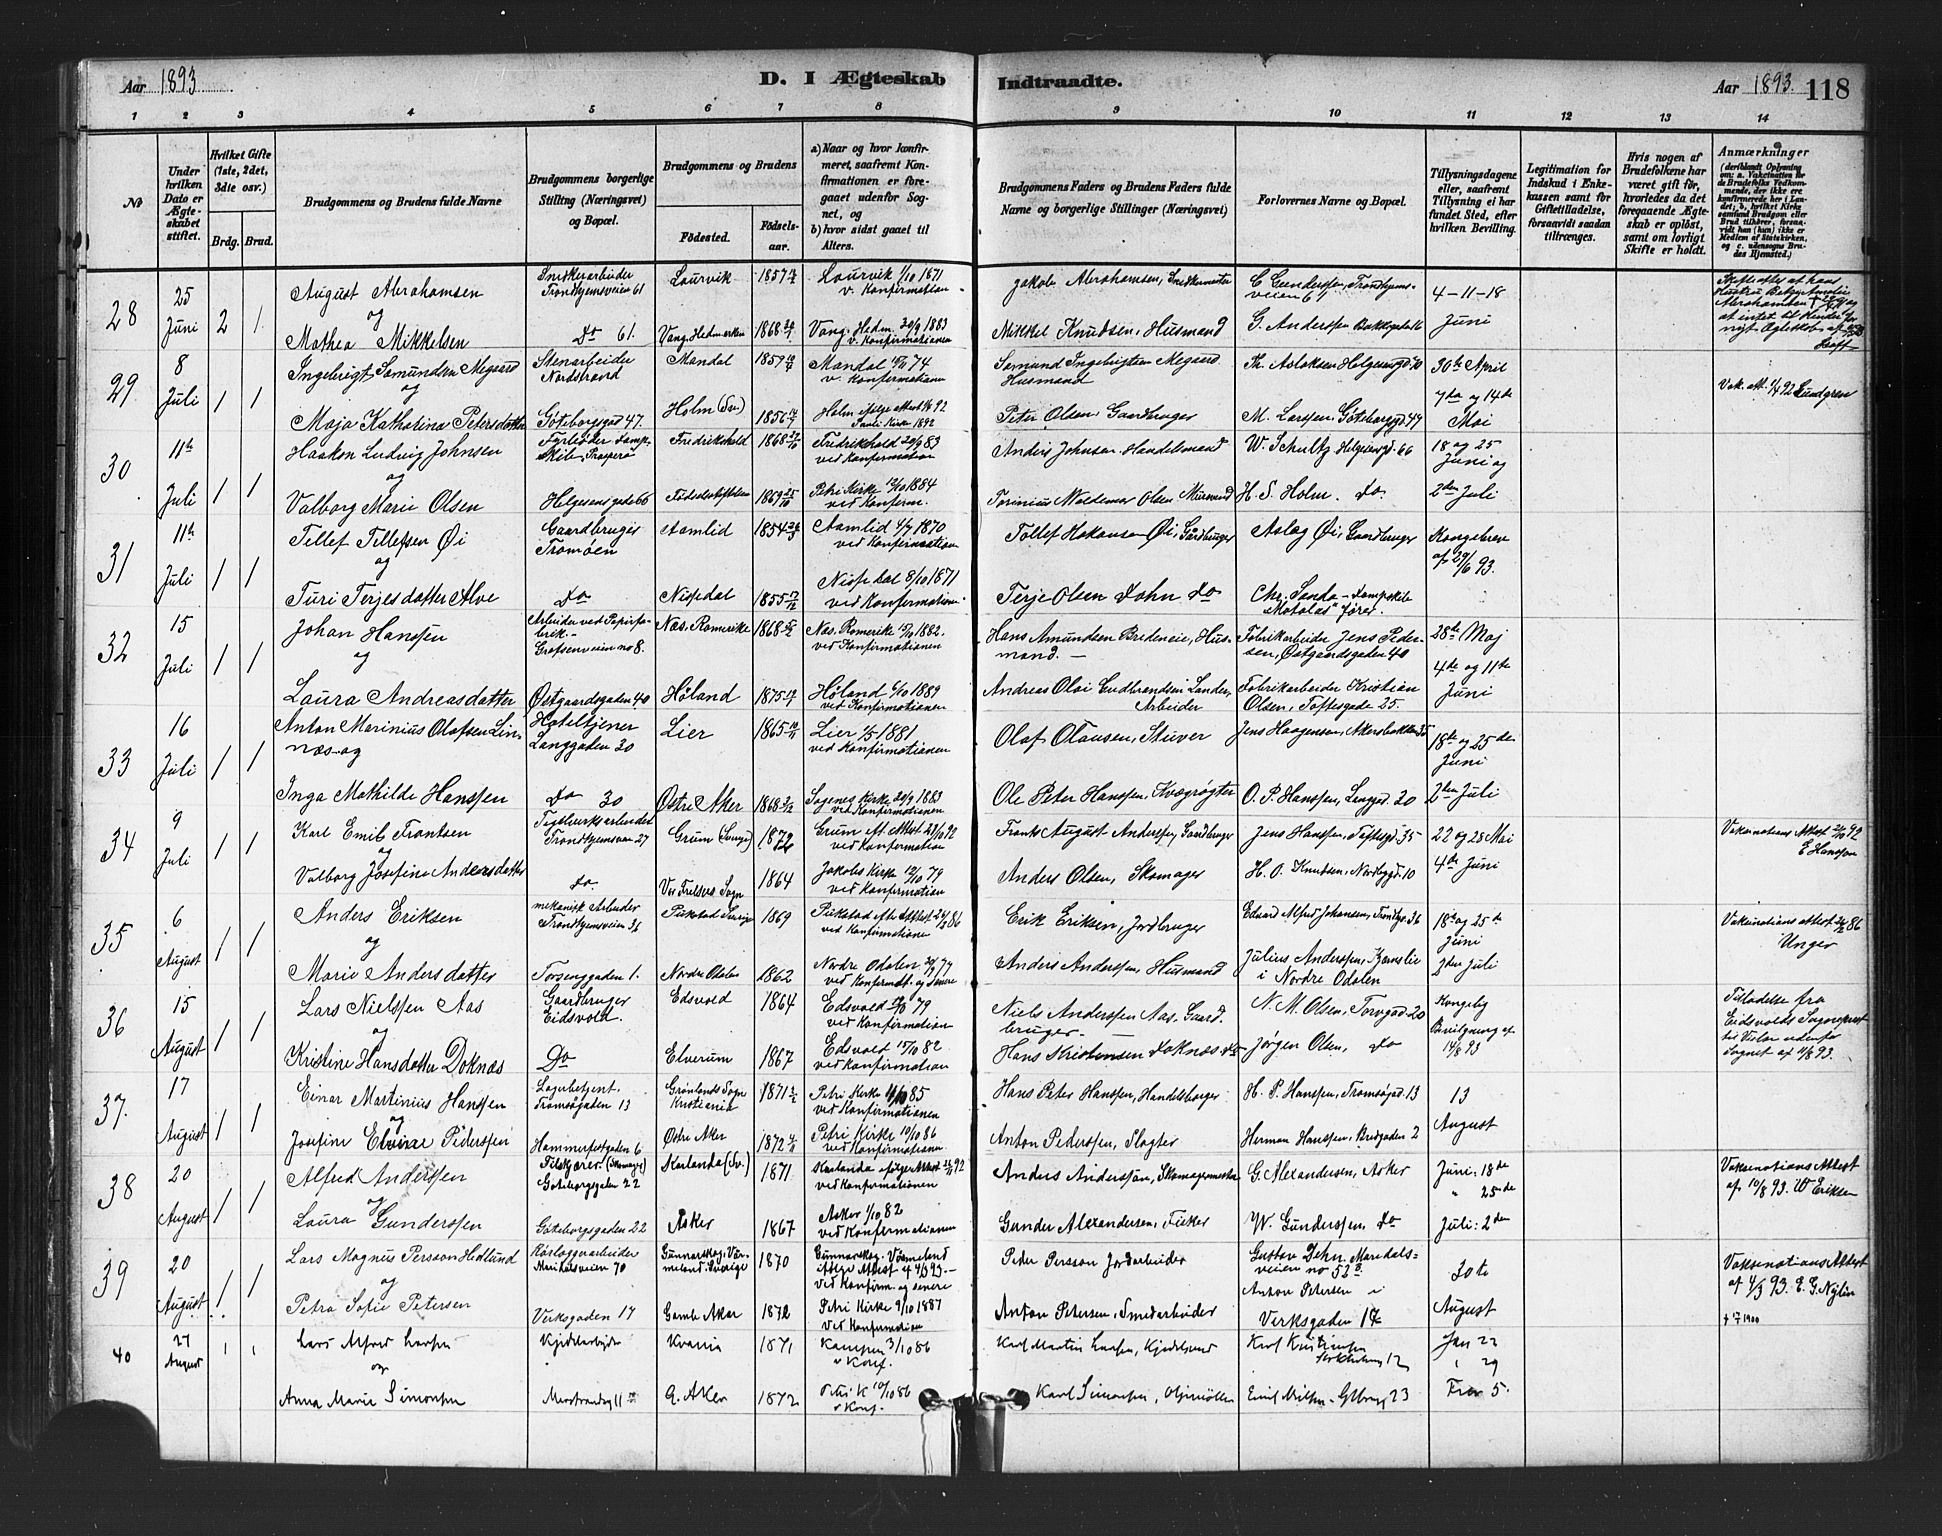 Aar 1893 D. I Ægteskab Indtraadte. Aar 1893. 118
1 2 3 4 5 6 7 8 9 10 11 12 13 14
No
Under hvilken Dato er Ægteskabet stiftet.
Hvilket Gifte (1ste, 2det, 3die osv.)
Brdg. Brud.
Brudgommens og Brudens fulde Navne
Brudgommens borgerlige Stilling (Næringsvei) og Bopæl.
Brudgommens og Brudens
Fødested. Fødselsaar.
a) Naar og hvor konfirmeret, saafremt Konfirmationen er foregaaet udenfor Sognet, og
b) hvor sidst gaaet til Alters.
Brudgommens Faders og Brudens Faders fulde Navne og borgerlige Stillinger (Næringsvei)
Forlovernes Navne og Bopæl.
Tillysningsdagene eller, saafremt Tillysning ei har fundet Sted, efter hvilken Bevilling.
Legitimation for Indskud i Enkekassen samt for Giftetilladelse, forsaavidt saadan tiltrænges.
Hvis nogen af Brudefolkene har været gift før, hvorledes da det foregaaende Ægteskab er opløst, samt om lovligt Skifte er holdt.
Anmærkninger
(deriblandt Oplysning om: a. Vakcination for de Brudefolks Vedkommende, der ikke ere konfirmerede her i Landet; b. hvilket Kirkesamfund Brudgom eller Brud tilhører, forsaavidt han (hun) ikke er Medlem af Statskirken, og c. udensogns Brudes Hjemsted.)
28 25 Juni 2 1
August Abrahamsen Snedkerarbeider Trondhjemsveien 61 Laurvik 1857 Laurvik 1/10 1871 v. Konfirmationen Jakob Abrahamsen, Snedkermester C Gundersen, Trondhjemsveien 61 4-11-18 Juni
og
Mathea Mikkelsen Do 61. Vang. Hedemarken 1868 Vang. Hedm. 30/9 1883 v. Konfirmationen Mikkel Knudsen, Husmand G. Anderssen Bakkegade 16
29 8 Juli 1 1
Ingebrigt Samundsen Megaard Stenarbeider Nordstrand Mandal 1859 Mandal 74 v. Konfirmationen Samund Ingebrigtsen Megaard Husmand Th. Aslaksen Helgesensgd 70 30te April
og
Maja Kathatina Petersdatter Göteborgsgd 47. Holm (Sv.) 1856 Holm ifølge Attest 92 Pauli Kirke 1892 Peter Olsen, Gaardbruger M. Larssen, Göteborgsgd 47 7da og 14de Mai
Vak. att. 1/4 92 Lundgreve
30 11te Juli 1 1
Haakon Ludvig Johnsen Fyrbøder Dampskib „Prospero Fredrikshald 1868 Fredrikshald 30/9 83 ved Konfirmation Anders Johnsen Handelsmand W. Schultz Helgesensgd. 66 18 og 25 Juni og
og
Valborg Marie Olsen Helgesensgade 66 Fødselsstiftelsen 1869 Petri Kirke 12/10 1884 ved Konfirm. Torinius Waldemar Olsen Murmand H. S. Holm. Do 2den Juli
31 11te Juli 1 1
Tellef Tellefsen Øi Gaardbruger Tromøen Aamlid 1854 Aamlid 4/7 1870 ved Konfirmationen Tollef Hakonsen Øi, Gårdbruger Aslag Øi, Gaardbruger Kongebrev af 29/6 93.
og
Turi Terjesdatter Alve Do Nissedal 1855 Nissedal 8/10 1871 ved Konfirmationen Terje Olsen Dahn Do Chr. Sanda - Dampskib „Motalas“ fører.
32 15 Juli 1 1
Johan Hanssen Arbeider ved Papirfabrik - Grefsenveien no 8. Næs. Romerike 1868 Næs. Romerike 15/10 1882. ved Konfirmationen Hans Amundsen Bredeneie, Husmand. Fabrikarbeider Jens Pedersen, Østgaardsgaden 40 28de Maj
og
Laura Andreasdatter Østgaardsgaden 40 Høland 1875 Høland 6/10 1889 ved Konfirmationen Andreas Olai Gudbrandsen Lander, Arbeider Fabrikarbeider Kristian Olsen, Toftesgade 25. 4de og 11te Juni
33 16 Juli 1 1
Anton Marinius Olafsen Linnæs og Hoteltjener Langgaden 30 Lier 1865 Lier 1/5 1881 ved Konfirmationen Olaf Olausen, Stuver Jens Haagensen, Akersbakken 35 18de og 25de Juni
Inga Mathilde Hanssen Do 30 Østre Aker 1868 Sagenes Kirke 30/9 1883 ved Konfirmationen Ole Peter Hanssen, Kvægrøgter O. P. Hanssen, Langgd 30 2den Juli
34 9 Juli 1 1
Karl Emil Frantsen Teglverksarbeider Trondhjemsvn 27 Grum (Sverige) 1872 Grum eft. Attest 28/10 92 ved Konfirmationen Frants August Anderssen, Gardbruger Jens Hanssen, Toftesgd. 35 22 og 28 Mai
og
Valborg Josefine Andersdatter Do. Vor Frelsers Sogn 1864 Jakobs Kirke 12/10 79 ved Konfirmationen Anders Olsen, Skomager H. O. Knudsen, Nordbygd. 10 4de Juni
Vaksinations Attest 92 E Hanssen
35 6 August 1 1
Anders Eriksen mekanisk Arbeider Trondhjemsveien 36 Sverige 1869 eft. Attest 86 ved Konfirmationen Erik Eriksen, Jordbruger Edvard Alfred Johansen, Trondhj. 36 18de og 25de Juni
og
Marie Andersdatter Torsenggaden 1. Nordre Odalen 1862 Nordre Odalen 77 ved Konfirmat. og senere Anders Anderssen, Husmand Julius Anderssen, Kjemslie i Nordre Odalen 2den Juli
Vaksinations attest 86 Unger
36 15 August 1 1
Lars Nielssen Aas Gaardbruger Eidsvold. Edsvold 1864 Edsvold 79 ved Konfirmation Niels Anderssen Aas. Gaardbruger. N. M. Olsen, Torvgad 20 Kongelig Bevilgning af 14/8 93
og
Kristine Hansdatter Doknæs Do Elverum 1867 Edsvold 15/10 82 ved Konfirmation Hans Kristensen Doknæs Do Jørgen Olsen, Do
Tilladelse fra Eidsvolds Sognepræst til Vielse udenfor Sognet af 11/8 93.
37. 17 August 1 1
Einar Martinius Hanssen Lagerbetjent. Tromsøgaden 13 Grønlands Sogn Kristiania 1871 Petri Kirke 11/10 85 ved Konfirmationen Hans Peter Hanssen, Handelsborger H. P. Hanssen, Tromsøgad 13 13 August
og
Josefine Pederssen Hammerfestgaden 6 Østre Aker 1872 Petri Kirke 10/10 86 ved Konfirmationen Anton Pederssen, Slagter Herman Hanssen, Bredgaden 2
38 20 August 1 1
Alfred Anderssen Tilskjærer (Skomager) Göteborgsgaden 22 Karlanda (Sv.) 1871 Karlanda ifølge Attest 92 ved Konfirmationen Anders Anderssøn, Skomagermester G. Alexandersen, Asker Juni: 18de „ 25de
og
Laura Gunderssen Göteborgsgaden 22 Asker 1867 Asker 1/10 82 ved Konfirmationen Gunder Alexandersen, Fisker W. Gunderssen, Do Juli: 2de
Vaksinations Attest af 10/8 93. W Eriksen
39 20 August 1 1
Lars Magnus Persson Hedlund Rørlæggerarbeider Maridalsveien 70 Gunnarskog, Värmeland. Sverige 1870 Gunnarskog. Värmeland ifølge Attest af 4/3 93. - ved Konfirm. og senere Peder Persson Jordarbeider Gustav Dehn. Maridalsveien no 53 20te
og
Petra Sofie Petersen Verksgaden 17 Gamle Aker 1872 Petri Kirke 9/10 1887 ved Konfirmation Anton Petersen, Smedarbeider Anton Petersen i Verksgaden 17 August
Vaksinations Attest af 4/3 93. E. G. Nylin
40 27 August 1 1
Lars Alfred Larssen Kjedelarbejder Kvænia 1871 Kampen 3/10 86 v Konf. Karl Martin Larssen, Kjedelsmed Karl Kristiansen Stockholmsg 12 Jan 22 „ 29
og
Anna Marie Simonsen Marstrandsg 11 G. Aker 1872 Petri K 10/10 86 v Konf. Karl Simonsen, Oljemøller Emil Nilsen - Gtbrgg 23 Febr 5.